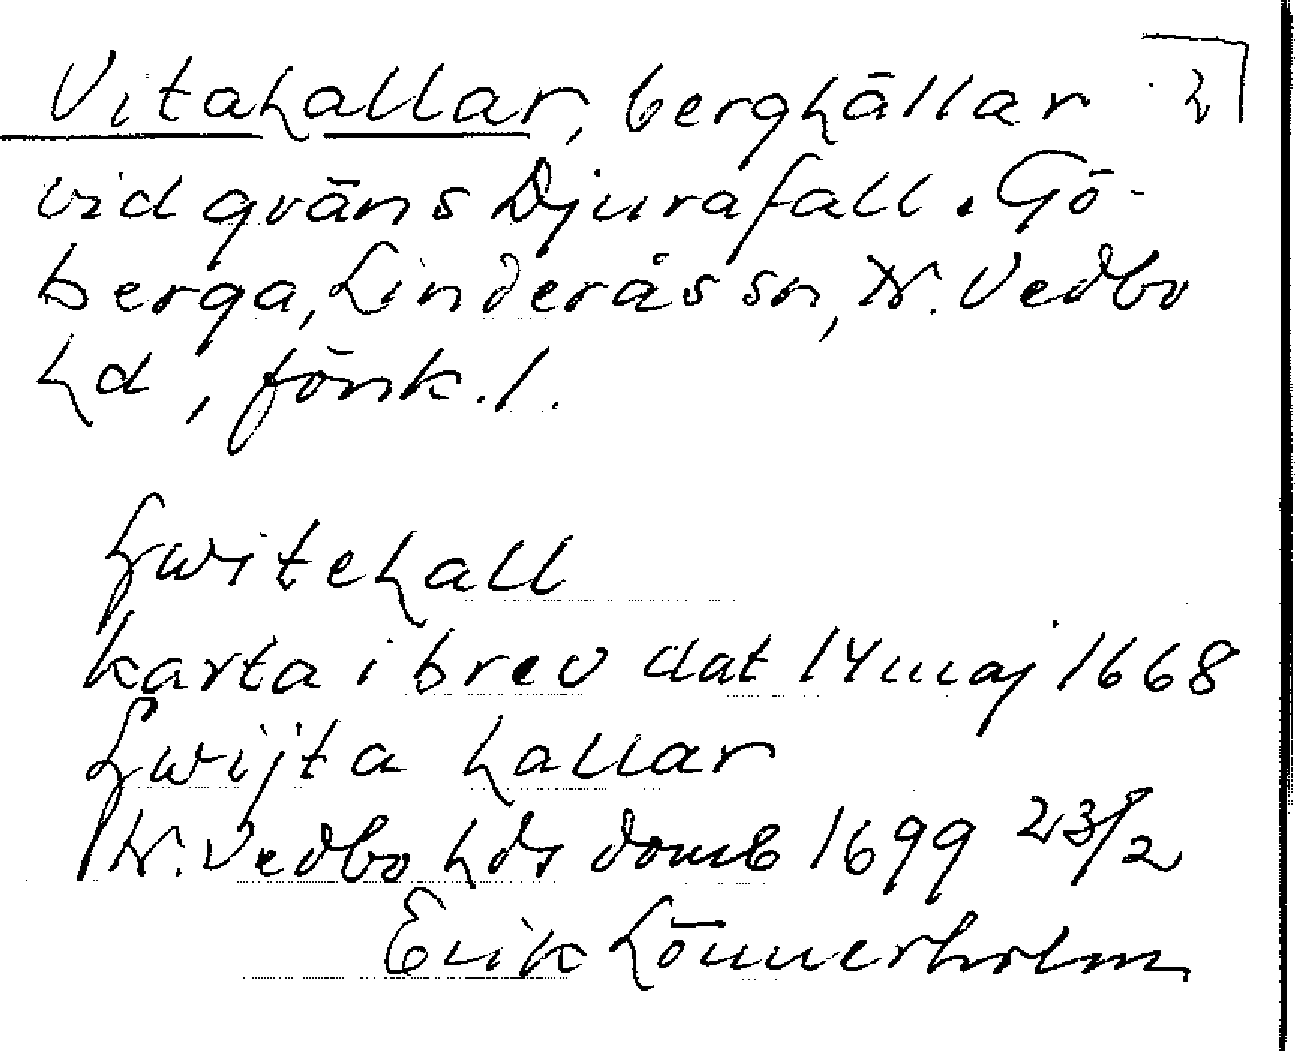 Vitahallar, berghällar 2
vid gräns Djurafall - Gö-
berga, Linderås sn, N. Vedbo
hd, Jönk. l.
Hwitehall
karta i brev dat 14 maj 1668
Hwijta hallar
N. Vedbo hds domb 1699 23/2
Erik Lönnerholm